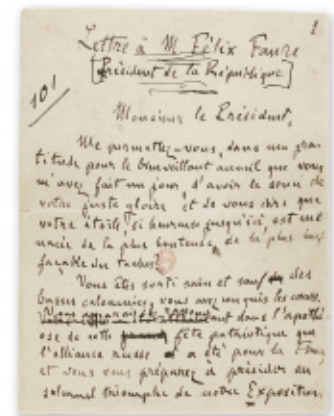 1
Lettre à M. Félix Faure
[Président de la République]
101
Monsieur le Président,
Me permettez-vous, dans ma gra-
titude pour le bienveillant accueil que vous
m'avez fait un jour, d'avoir le souci de
votre juste gloire et de vous dire que
votre étoile, si heureuse jusqu'ici, est me-
nacée de la plus honteuse, de la plus inef-
façable des taches?
Vous êtes sorti sain et sauf des
basses calomnies, vous avez conquis les cœurs.
Vous apparaissez rayonnant dans l'apothé-
ose de cette fête patriotique que
l'alliance russe a été pour la France
et vous vous préparez à présider au
solennel triomphe de notre Exposition